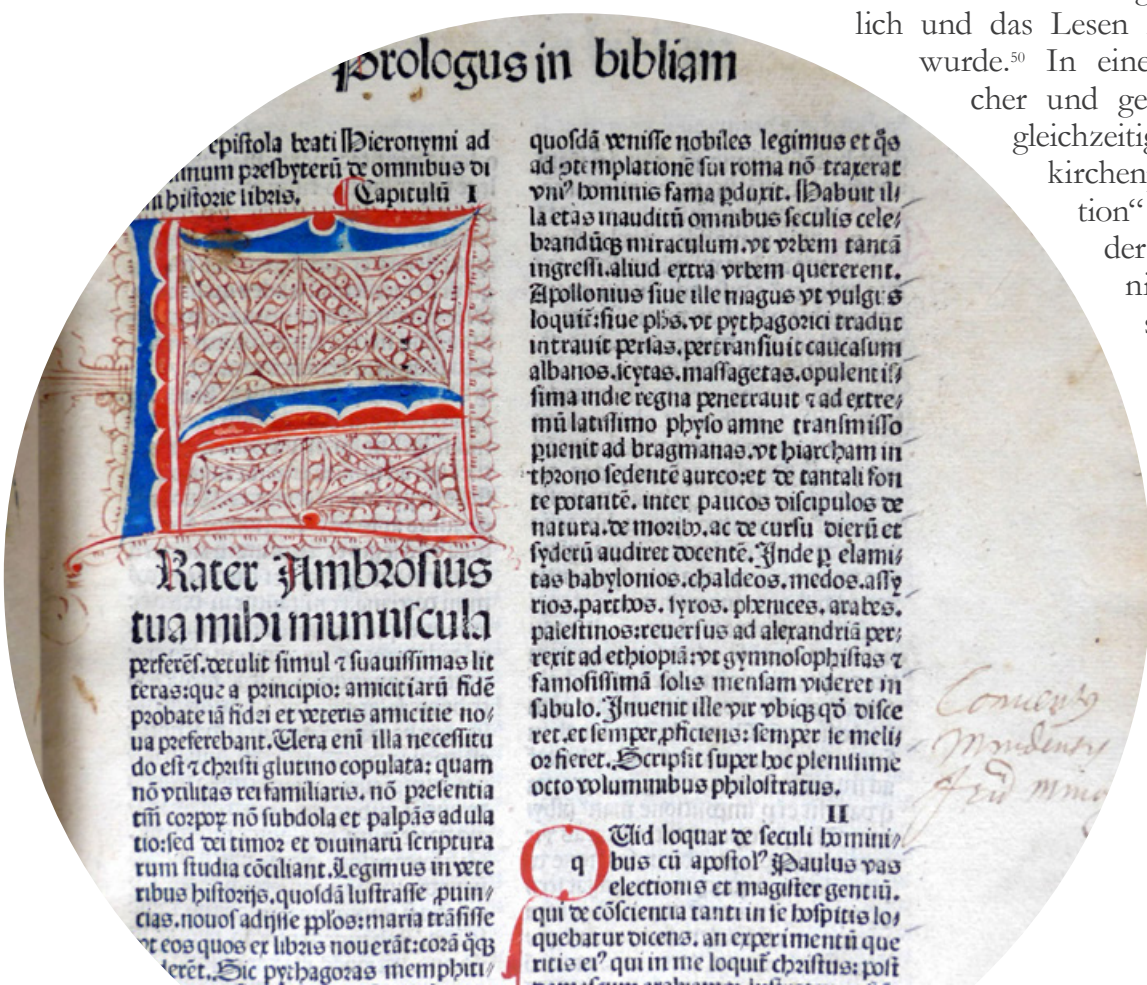 lich und das Lesen
wurde.⁵⁰ In eine
cher und ge
gleichzeitig
kirchen
tion“
der
ni
Prologus in bibliam
epiſtola beati Hieronymi ad
preſbyterū de omnibus di
hiſtorie libris. Capitulū I
F
Rater Ambroſius
tua mihi munuſcula
perferēſ. detulit ſimul ⁊ ſuauiſſimas lit
teras: que a principio: amicitiarū fidē
probate iā fidei et veteris amicitie no⸗
ua preferebant. Uera eni illa neceſſitu
do eſt ⁊ chriſti glutino copulata: quam
nō vtilitas rei familiaris. nō preſentia
tm̄ corpoꝝ nō ſubdola et palpās adula
tio: ſed dei timor et diuinarū ſcriptura
rum ſtudia cōciliant. Legimus in vete
ribus hiſtorijs. quoſdā luſtraſſe ꝓuin⸗
cias. nouoſ adijſſe pplos: maria trāſiſſe
vt eos quos ex libris nouerāt: corā q̄qꝫ
Sic pythagoras memphiti⸗
quoſdā veniſſe nobiles legimus et q̄s
ad ꝯtemplationē ſui roma nō traxerat
vniꝰ hominis fama pduxit. Habuit il⸗
la etas inauditū omnibus ſeculis cele⸗
brandūqꝫ miraculum. vt vrbem tantā
ingreſſi. aliud extra vrbem quererent.
Apollonius ſiue ille magus vt vulgus
loquit᷑: ſiue phs. vt pythagorici tradūt
intrauit perſas. pertranſiuit caucaſum
albanos. ſcytas. maſſagetas. opulentiſ⸗
ſima indie regna penetrauit ⁊ ad extre⸗
mū latiſſimo phyſo amne tranſmiſſo
puenit ad bragmanas. vt hiarcham in
throno ſedentē aureo: et de tantali fon
te potantē. inter paucos diſcipulos de
natura. de moribꝰ. ac de curſu dierū et
ſyderū audiret docentē. Inde ꝑ elami⸗
tas babylonios. chaldeos. medos. aſſy
rios. parthos. ſyros. phenices. arabes.
paleſtinos: reuerſus ad alexandriā per⸗
rexit ad ethiopiā: vt gymnoſophiſtas ⁊
famoſiſſimā ſolis menſam videret in
ſabulo. Inuenit ille vir vbiqꝫ qd̄ diſce
ret. et ſemper ꝓficiens: ſemper ſe meli⸗
or fieret. Scripſit ſuper hoc pleniſſime
octo voluminibus philoſtratus.
II
Q
q
Uid loquar de ſeculi homini⸗
bus cū apoſtolꝰ Paulus vas
electionis et magiſter gentiū.
qui de cōſcientia tanti in ſe hoſpitis lo⸗
quebatur dicens. an experimentū que
ritis eiꝰ qui in me loquit᷑ chriſtus: poſt
Conuentꝰ
Mindensis